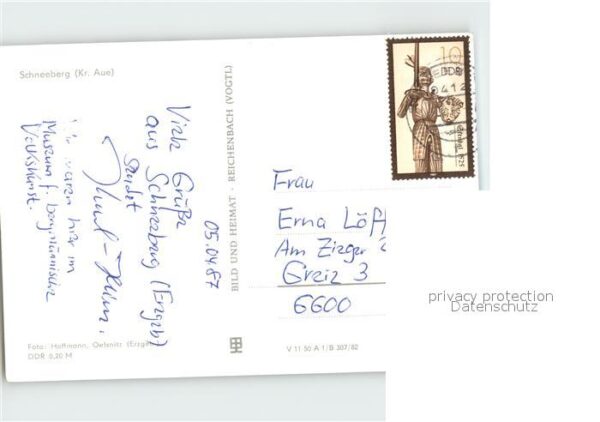 Schneeberg (Kr. Aue)
05.04.87
Viele Grüße
aus Schneeberg (Erzgeb)
sendet
Wir waren hier im
Museum f. bergmännische
Volkskunst.
Foto: Hoffmann, Oelsnitz (Erzgeb
DDR 0,20 M
BILD UND HEIMAT · REICHENBACH (VOGTL)
V 11 50 A 1/B 307/82
10
DDR
Frau
Erna Löff
Am Zirger
Greiz 3
6600
privacy protection
Datenschutz